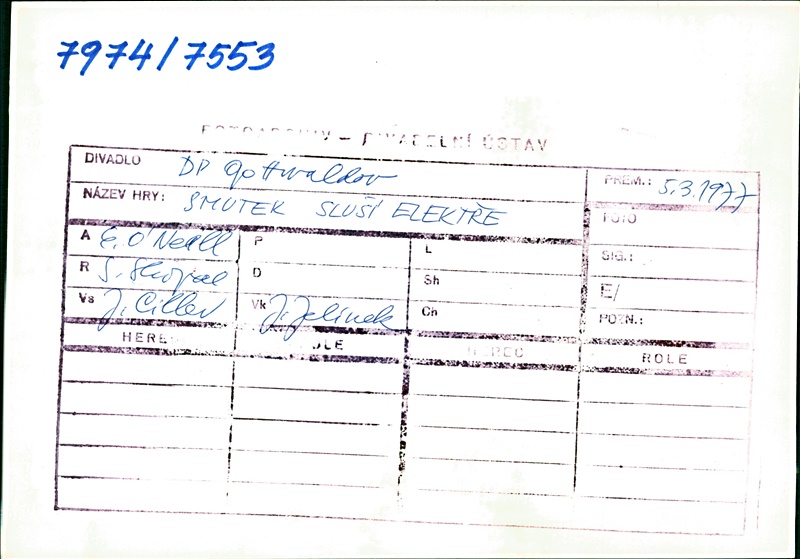 7974/7553
FOTOARCHIV – DIVADELNÍ ÚSTAV
DIVADLO DP Gottwaldov
PREM.: 5.3.1977
NÁZEV HRY: SMUTEK SLUŠÍ ELEKTŘE
FOTO
A E. O'Neill P L
SIG.:
R S. D Sh
E/
Vs J. Ciller Vk J. Jelínek Ch
POZN.:
HEREC ROLE HEREC ROLE